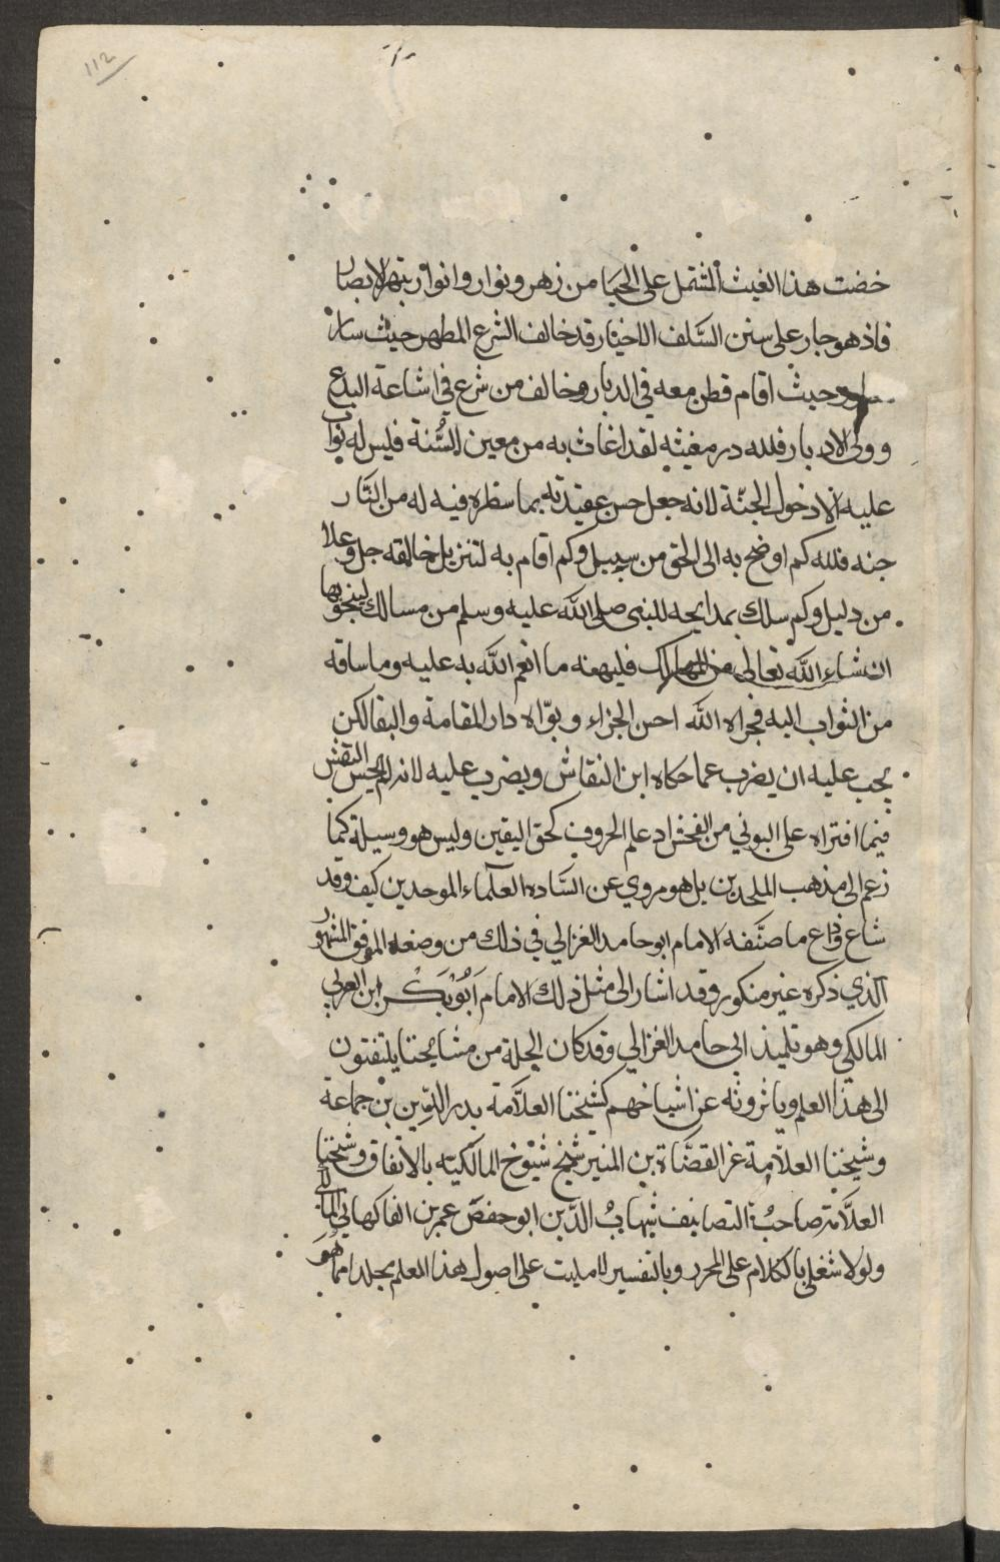 112
خضت هذا الغيث المشتمل على الحيا من زهر ونوار وانوار تبهر الابصار
فاذ هو جار على سنن السَّلف الاخيار قد خالف الشرع المطهر حيث سار
وحيث اقام قطن معه في الديار وخالف من شرع في اشاعة البدع
وولى الادبار فلله در مغيثه لقد اغاث به من معين السُّنة فليس له ثواب
عليه الا دخول الجنّة لانه جعل حسن عقيدته بما سطره فيه له من النّار
جنه فلله كم اوضح به الى الحق من سبيل وكم اقام به لتنزيل خالقه جل وعلا
من دليل وكم سلك بمدايحه للنبي صلى الله عليه وسلم من مسالك لينجو بها
ان شاء الله تعالى من المهالك فليهنه ما انعم الله به عليه وما ساقه
من الثواب اليه فجزاه الله احسن الجزاء وبوّاه دار المقامة والبقا لكن
يجب عليه ان يضرب عما حكاه ابن النقاش ويضرب عليه لانه لم يحسن النقش
فيما افتراه على البوني من الفحش اذ علم الحروف كحق اليقين وليس هو وسيلة كما
زعم الى مذهب الملحدين بل هو مروي عن السَّاده العلماء الموحدين كيف وقد
شاع وذاع ما صنَّفه الامام ابو حامد الغزالي في ذلك من وضعه الموفق المشهور
الذي ذكره غير منكور وقد اشار الى مثل ذلك الامام اَبُوْ بَكْر ابن العربي
المالكي وهو تلميذ ابي حامد الغزالي وقد كان الجلة من مشايخنا يلتفتون
الى هذا العلم وياثرونه عن اشياخهم كشيخنا العلاَّمة بدر الدِّين بن جماعة
وشيخنا العلاّمة عز القضاة بن المنير شيخ شيوخ المالكيه بالاتفاق وشيخنا
العلاَّمة صاحبُ التصانيف شهابُ الدّين ابو حفص عمر بن الفاكهاني المالكي
ولولا شغلي بالكلام على المحرر وبالتفسير لامليت على اصول هذا العلم مجلدا مما هو